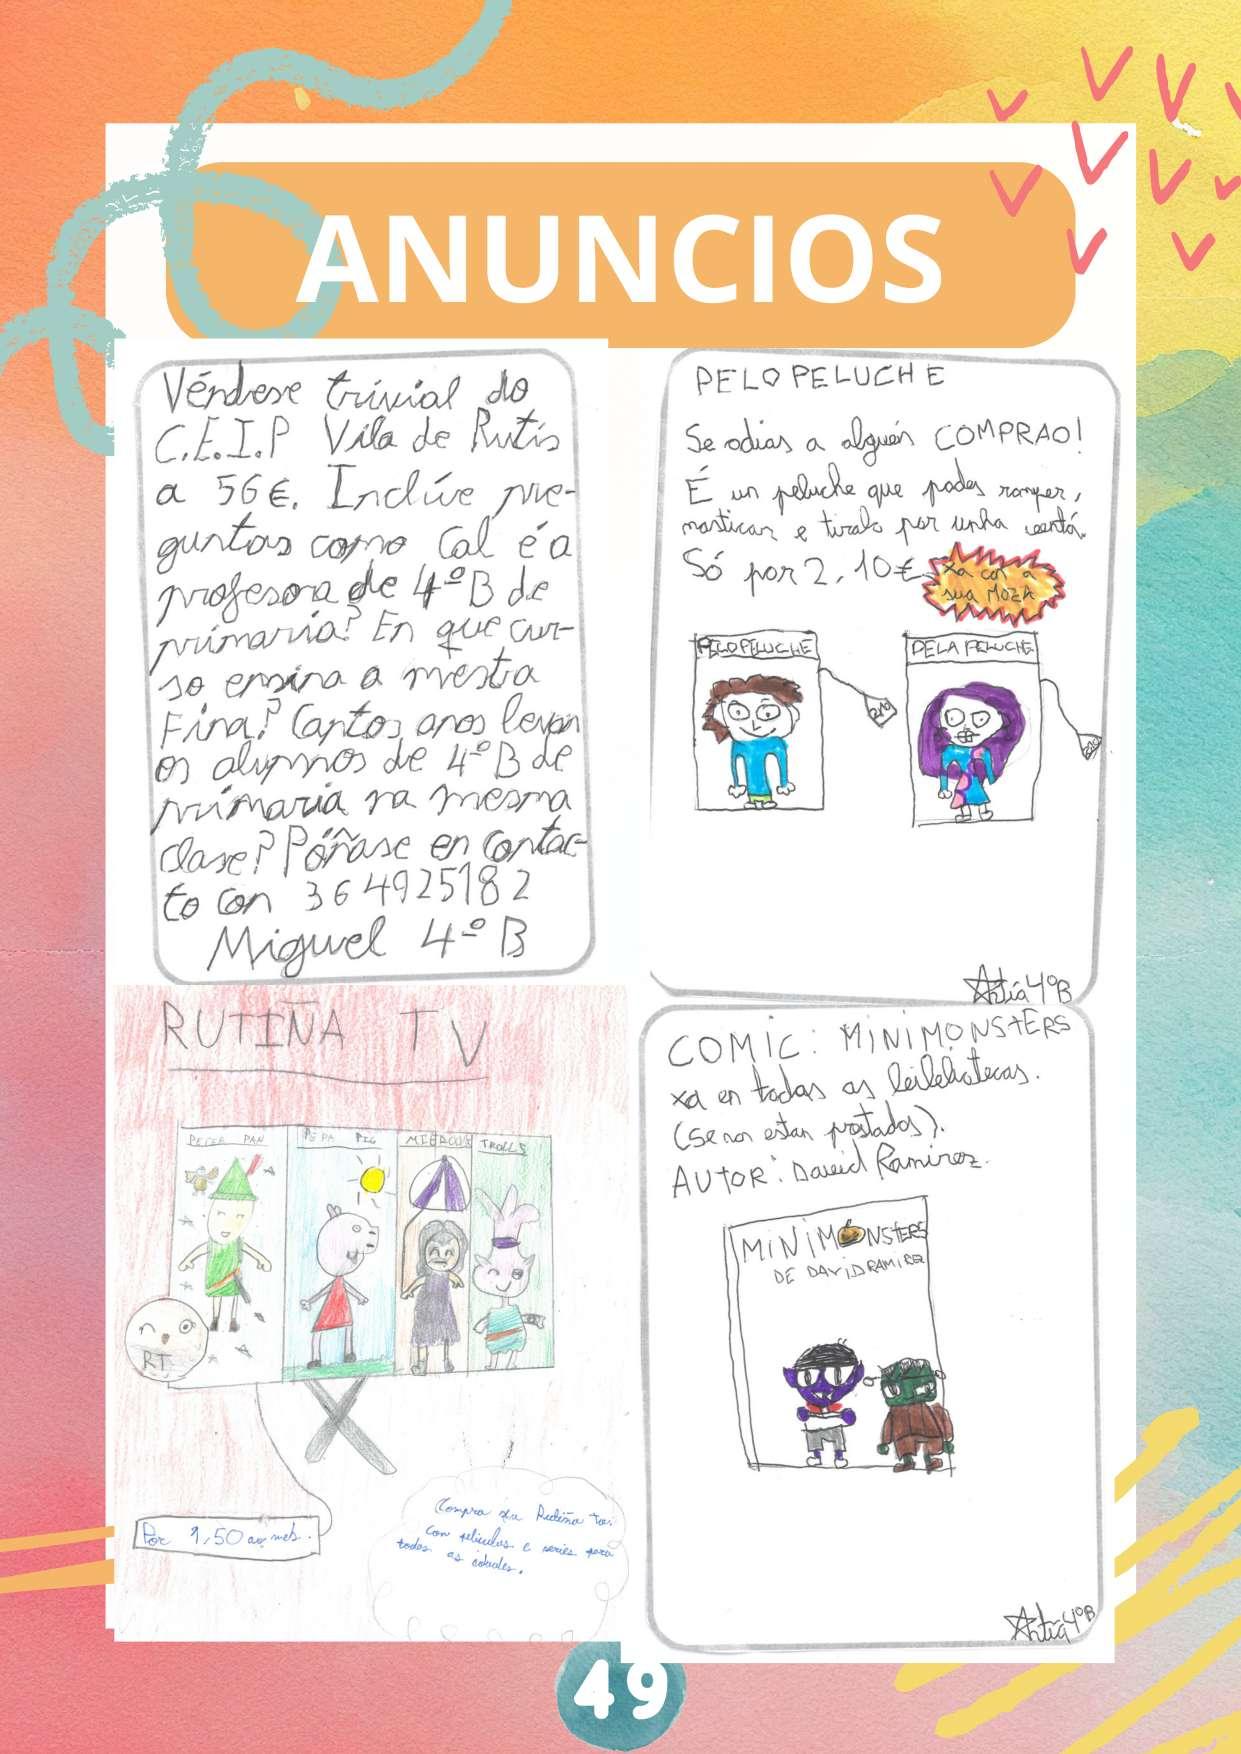 ANUNCIOS
Véndese trivial do
C.E.I.P Vila de Rutís
a 56€. Inclúe pre-
guntas como Cal é a
profesora de 4º B de
primaria? En que cur-
so ensina a mestra
Fina? Cantos anos levan
os alumnos de 4º B de
primaria na mesma
clase? Póñase en contac-
to con 364925182
Miguel 4º B
PELO PELUCHE
Se odias a alguén COMPRAO!
É un peluche que podes romper,
masticar e tiralo por unha ventá.
Só por 2,10€
xa con a
sua MOZA
PELOPELUCHE
PELA PELUCHE
210
210
Antía 4ºB
RUTIÑA TV
PETER PAN
PEPA PIG
MIÉRCOLES
TROLLS
RT
Por 1,50 ao mes.
Compra xa Rutiña tv.
con películas e series para
todas as idades.
COMIC: MINIMONSTERS
xa en todas as bibliotecas.
(Se non estan prestados).
AUTOR: David Ramirez.
MINIMONSTERS
DE DAVID RAMIREZ
Antía 4ºB
49